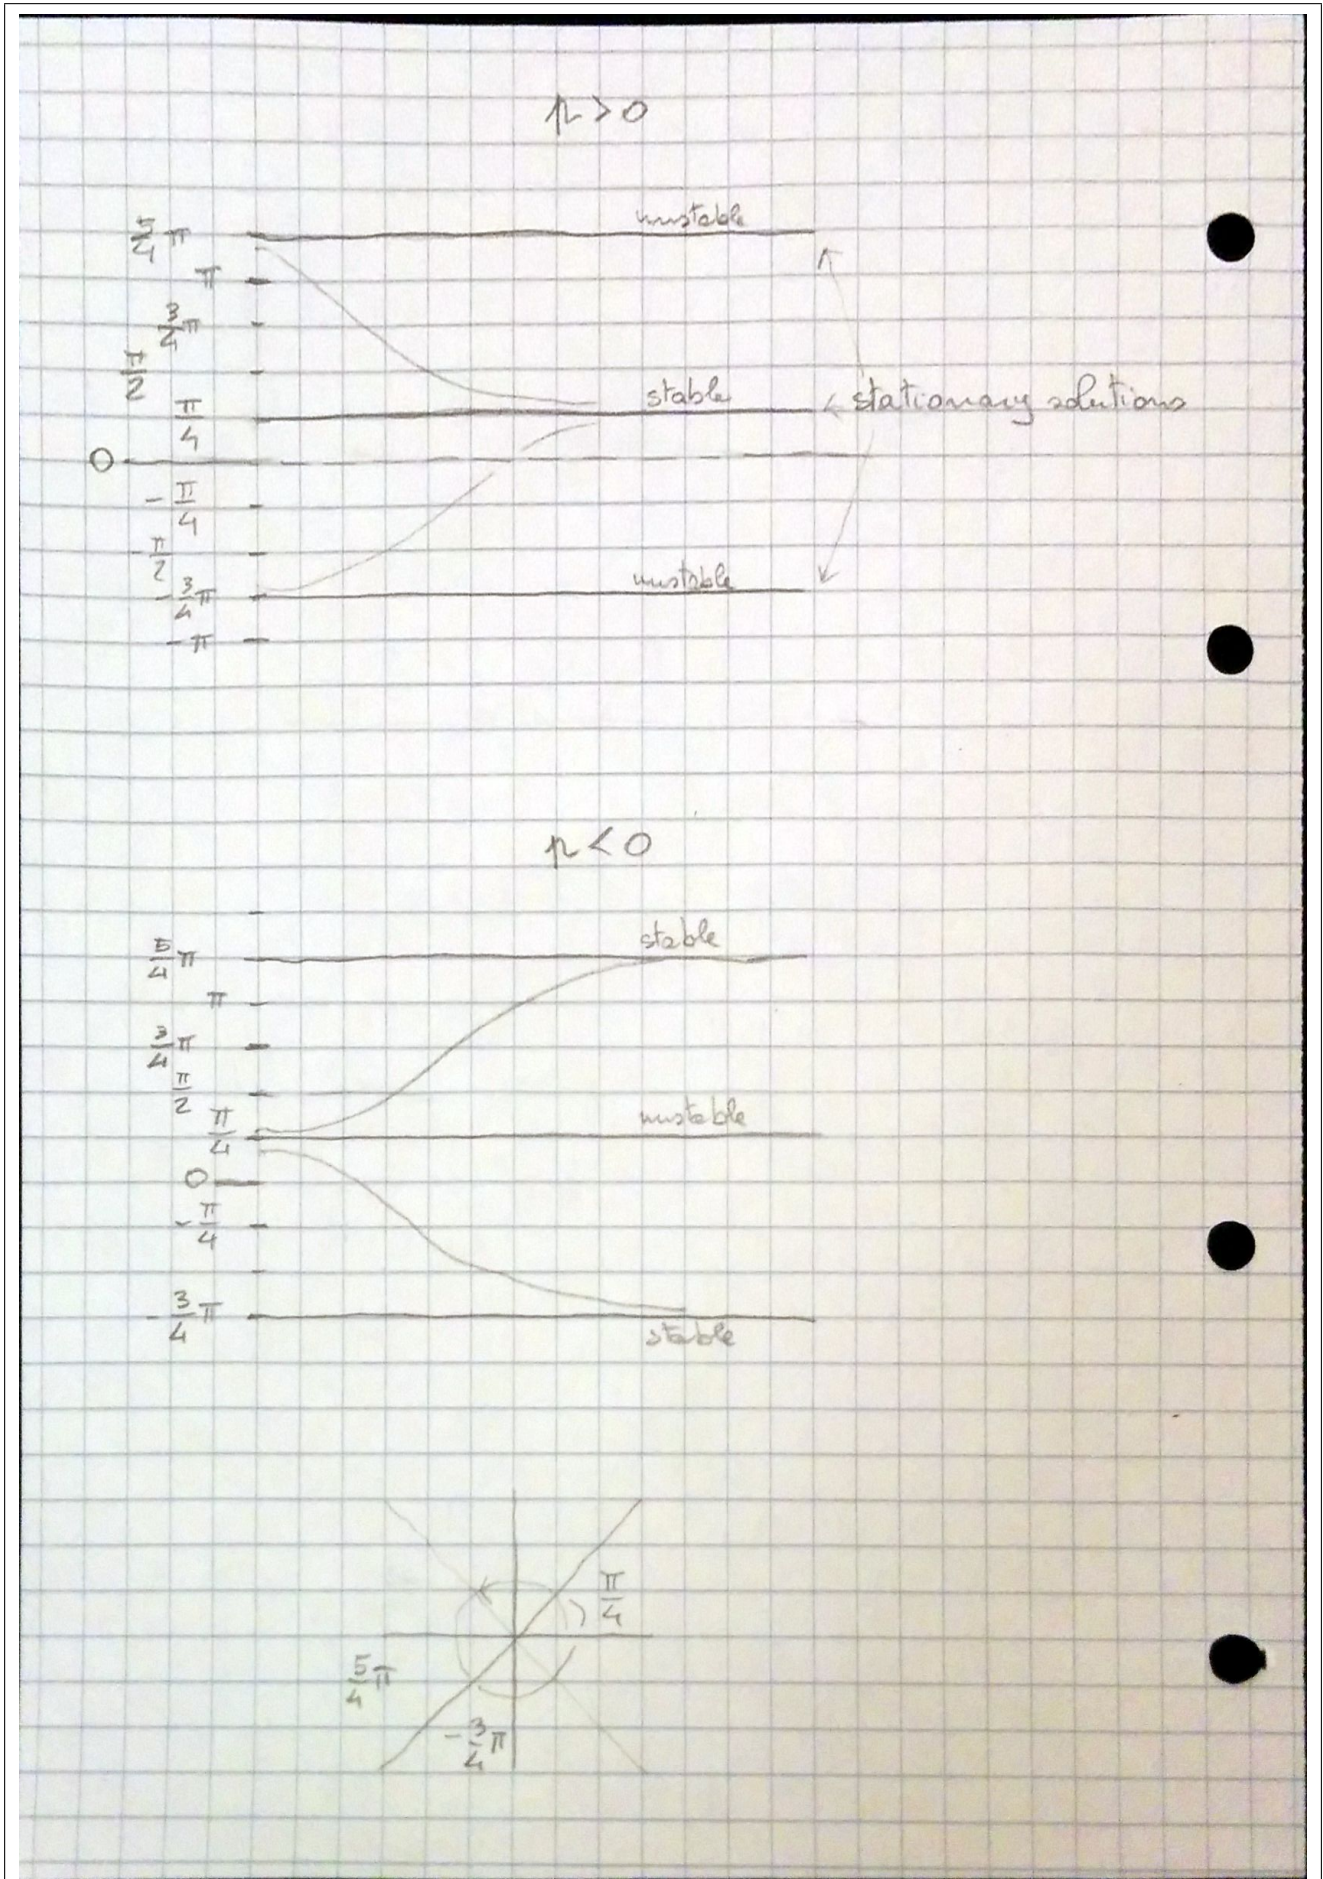 p > 0
unstable
5/4 π
π
3/4 π
π/2
stable
π/4
← stationary solutions
0
- π/4
- π/2
unstable
- 3/4 π
- π
p < 0
stable
5/4 π
π
3/4 π
π/2
unstable
π/4
0
- π/4
- 3/4 π
stable
π/4
5/4 π
- 3/4 π